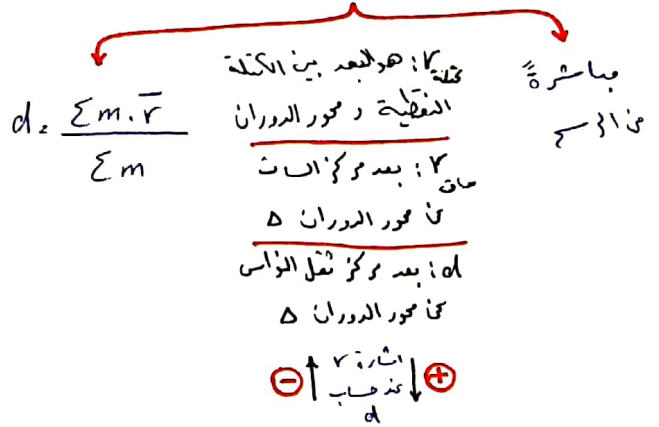 مباشرةً
من الرسم
r كتلة : هو البعد بين الكتلة
النقطية و محور الدوران
r ساق : بعد مركز الساق
عن محور الدوران Δ
d : بعد مركز ثقل النواس
عن محور الدوران Δ
d = Σm.r̅
Σm
اشارة r
عند حساب
d
⊖ ↑ ↓ ⊕